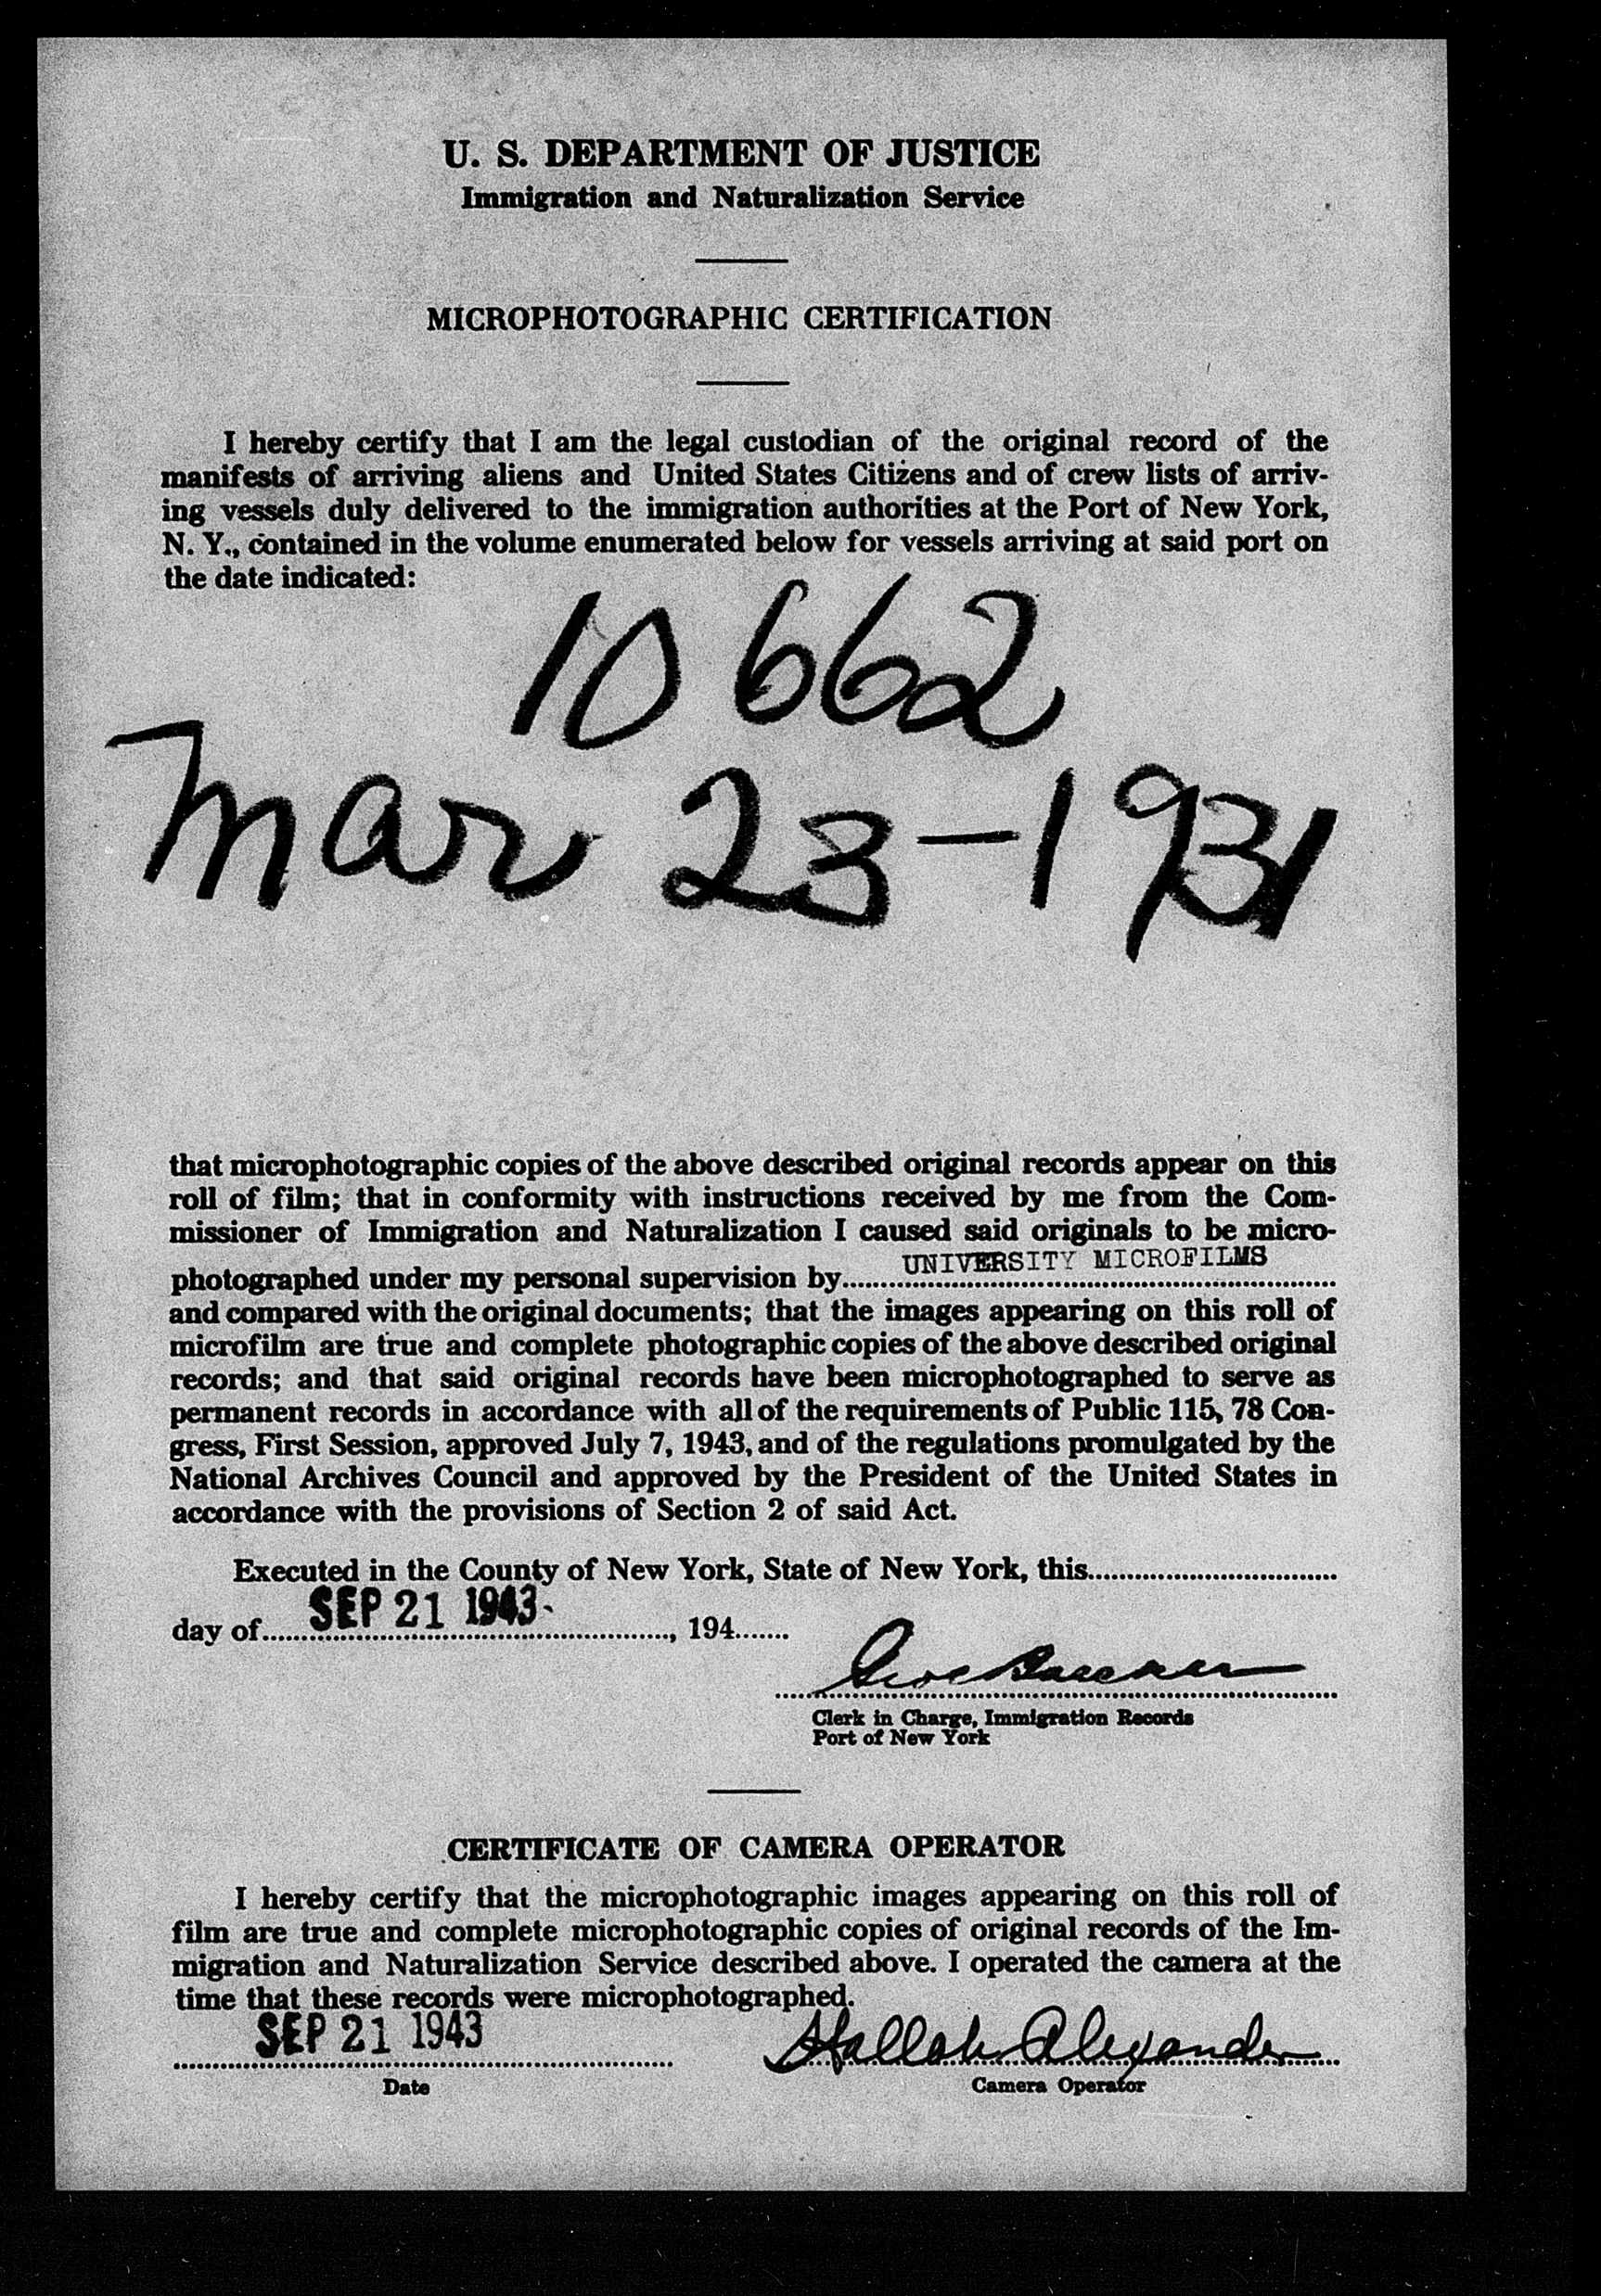 U. S. DEPARTMENT OF JUSTICE
Immigration and Naturalization Service
MICROPHOTOGRAPHIC CERTIFICATION
I hereby certify that I am the legal custodian of the original record of the
manifests of arriving aliens and United States Citizens and of crew lists of arriv-
ing vessels duly delivered to the immigration authorities at the Port of New York,
N. Y., contained in the volume enumerated below for vessels arriving at said port on
the date indicated:
10662
Mar 23-1931
that microphotographic copies of the above described original records appear on this
roll of film; that in conformity with instructions received by me from the Com-
missioner of Immigration and Naturalization I caused said originals to be micro-
photographed under my personal supervision by UNIVERSITY MICROFILMS
and compared with the original documents; that the images appearing on this roll of
microfilm are true and complete photographic copies of the above described original
records; and that said original records have been microphotographed to serve as
permanent records in accordance with all of the requirements of Public 115, 78 Con-
gress, First Session, approved July 7, 1943, and of the regulations promulgated by the
National Archives Council and approved by the President of the United States in
accordance with the provisions of Section 2 of said Act.
Executed in the County of New York, State of New York, this
day of SEP 21 1943, 194
Clerk in Charge, Immigration Records
Port of New York
CERTIFICATE OF CAMERA OPERATOR
I hereby certify that the microphotographic images appearing on this roll of
film are true and complete microphotographic copies of original records of the Im-
migration and Naturalization Service described above. I operated the camera at the
time that these records were microphotographed.
SEP 21 1943 Alexander
Date Camera Operator